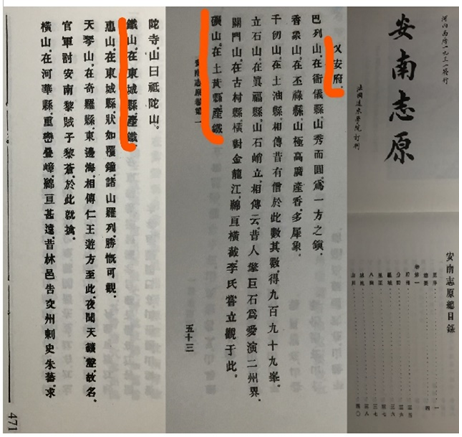 安南志原
法國遠東學院訂刊
安南志原總目錄
乂安府
巴列山在衙儀縣山秀而圓爲一方之鎮
香象山在丕祿縣極高廣產香多犀象
千仞山在土油縣相傳昔有僧於此數其數得九百九十九峯
立石山在眞福縣山石峭立相傳云昔人輦巨石爲愛演二州界
關門山在古村縣橫對金龍江綿亘橫截李氏嘗立觀于此
山在土黃縣產鐵
安南志原卷一
五十三
陀寺山曰祗陀山
鐵山在東城縣產鐵
惠山在東城縣狀如覆鐘諸山羅列勝慨可觀
天琴山在奇羅縣東邊海相傳仁王遊方至此夜聞天籟聲故名
官軍討安南黎賊子黎蒼於此就擒
橫山在河華縣重巒疊嶂綿亘甚遠昔林邑告交州刺史朱蕃求
471